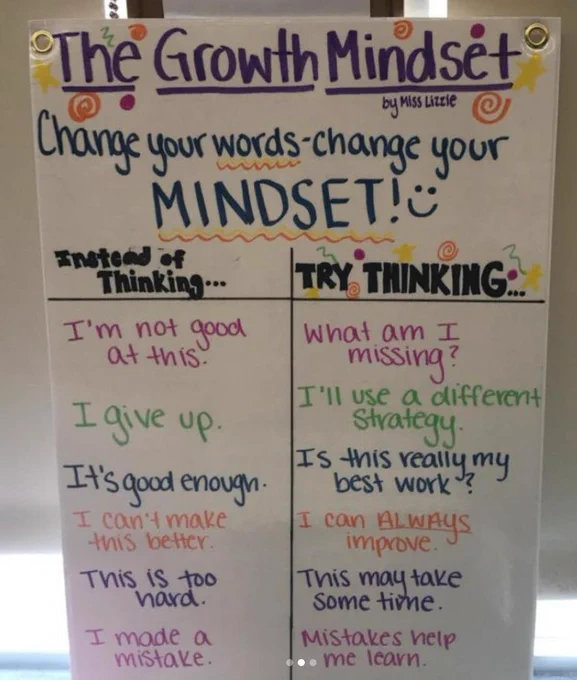 The Growth Mindset
by Miss Lizzie
Change your words-change your
MINDSET!
Instead of
Thinking...
TRY THINKING...
I'm not good
at this.
What am I
missing?
I give up.
I'll use a different
strategy.
It's good enough.
Is this really my
best work?
I can't make
this better.
I can ALWAYS
improve.
This is too
hard.
This may take
some time.
I made a
mistake.
Mistakes help
me learn.